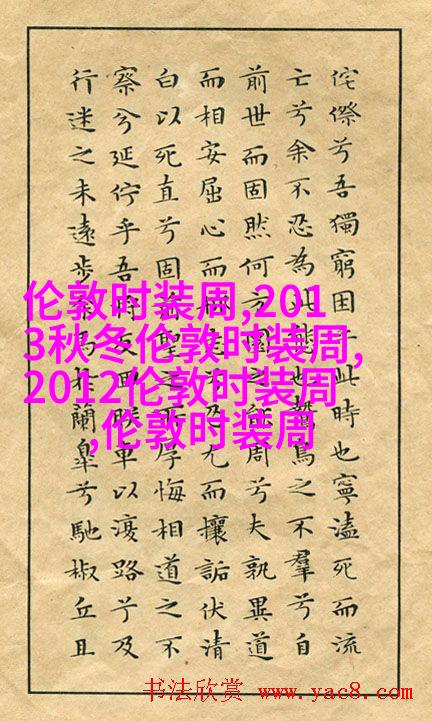 侘傺兮吾獨窮困乎此時也寧溘死而流
亡兮余不忍為此態也鷙鳥之不羣兮自
前世而固然何方圜之能周兮夫孰異道
而相安屈心而抑志兮忍尤而攘詬伏清
白以死直兮固聖之厚悔相道之不
察兮延佇乎吾將反回朕車以復路兮及
行迷之未遠步余馬於蘭皋兮馳椒丘且
伦敦时装周,201
3秋冬伦敦时装周,
2012伦敦时装周
,伦敦时装周
书法欣赏 www.yac8.com